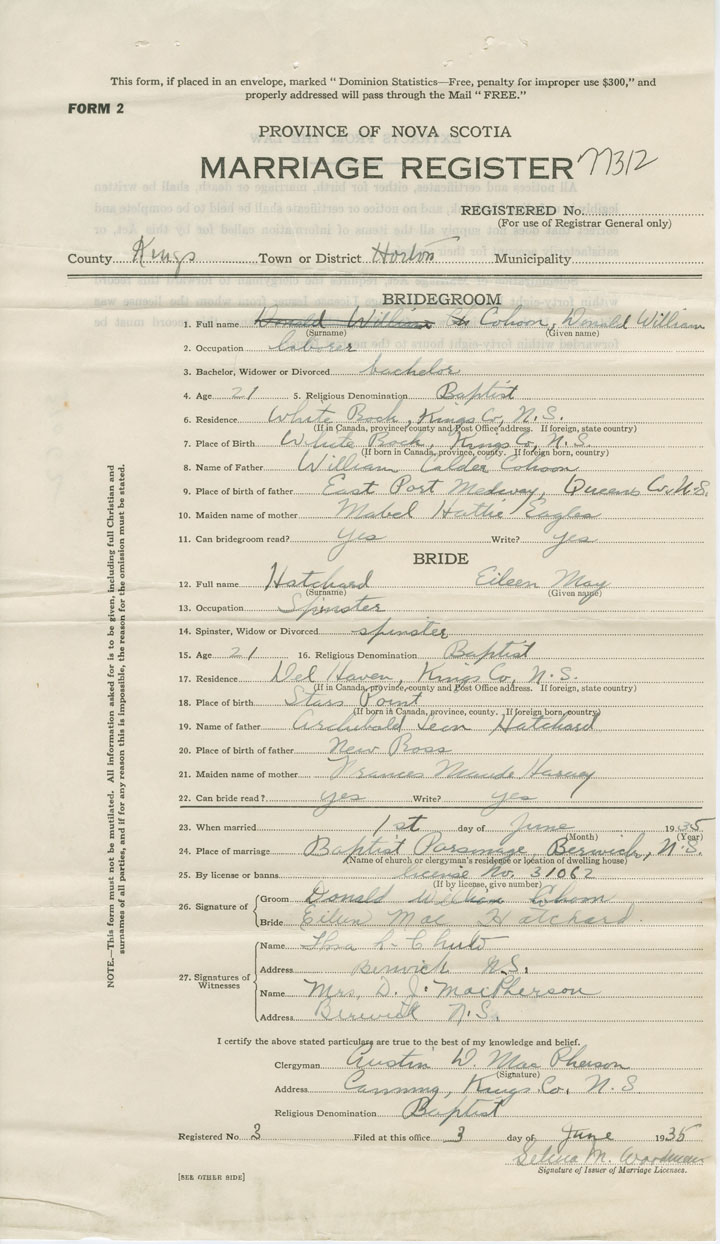 This form, if placed in an envelope, marked " Dominion Statistics—Free, penalty for improper use $300," and
properly addressed will pass through the Mail " FREE."
FORM 2
PROVINCE OF NOVA SCOTIA
MARRIAGE REGISTER
REGISTERED No.
(For use of Registrar General only)
County Kings Town or District Horton Municipality
BRIDEGROOM
1. Full name Donald William Cohoon, Donald William
(Surname) (Given name)
2. Occupation laborer
3. Bachelor, Widower or Divorced bachelor
4. Age 21 5. Religious Denomination Baptist
6. Residence White Rock, Kings Co, N.S.
(If in Canada, province, county and Post Office address. If foreign, state country)
7. Place of Birth White Rock, Kings Co, N.S.
(If born in Canada, province, county. If foreign born, country)
8. Name of Father William Calder Cohoon
9. Place of birth of father East Port Medway, Queens Co. N.S.
10. Maiden name of mother Mabel Hattie Eagles
11. Can bridegroom read? yes Write? yes
BRIDE
12. Full name Hatchard Eileen May
(Surname) (Given name)
13. Occupation Spinster
14. Spinster, Widow or Divorced spinster
15. Age 21 16. Religious Denomination Baptist
17. Residence Del Haven, Kings Co, N.S.
(If in Canada, province, county and Post Office address. If foreign, state country)
18. Place of birth Stars Point
(If born in Canada, province, county. If foreign born, country)
19. Name of father Archibald Leon Hatchard
20. Place of birth of father New Ross
21. Maiden name of mother Frances Maude Harvey
22. Can bride read? yes Write? yes
23. When married 1st day of June 1935
(Month) (Year)
24. Place of marriage Baptist Parsonage, Berwick, N.S.
(Name of church or clergyman's residence or location of dwelling house)
25. By license or banns license No. 31062
(If by license, give number)
26. Signature of Groom Donald William Cohoon
Bride Eileen Mae Hatchard
27. Signatures of Witnesses Name Chute
Address Berwick N.S.
Name Mrs. D. J. MacPherson
Address Berwick N.S.
I certify the above stated particulars are true to the best of my knowledge and belief.
Clergyman Austin D. MacPherson
(Signature)
Address Canning, Kings Co. N.S.
Religious Denomination Baptist
Registered No 3 Filed at this office 3 day of June 1935
Selina M. Woodman
Signature of Issuer of Marriage Licenses.
[SEE OTHER SIDE]
NOTE.—This form must not be mutilated. All information asked for is to be given, including full Christian and
surnames of all parties, and if for any reason this is impossible, the reason for the omission must be stated.